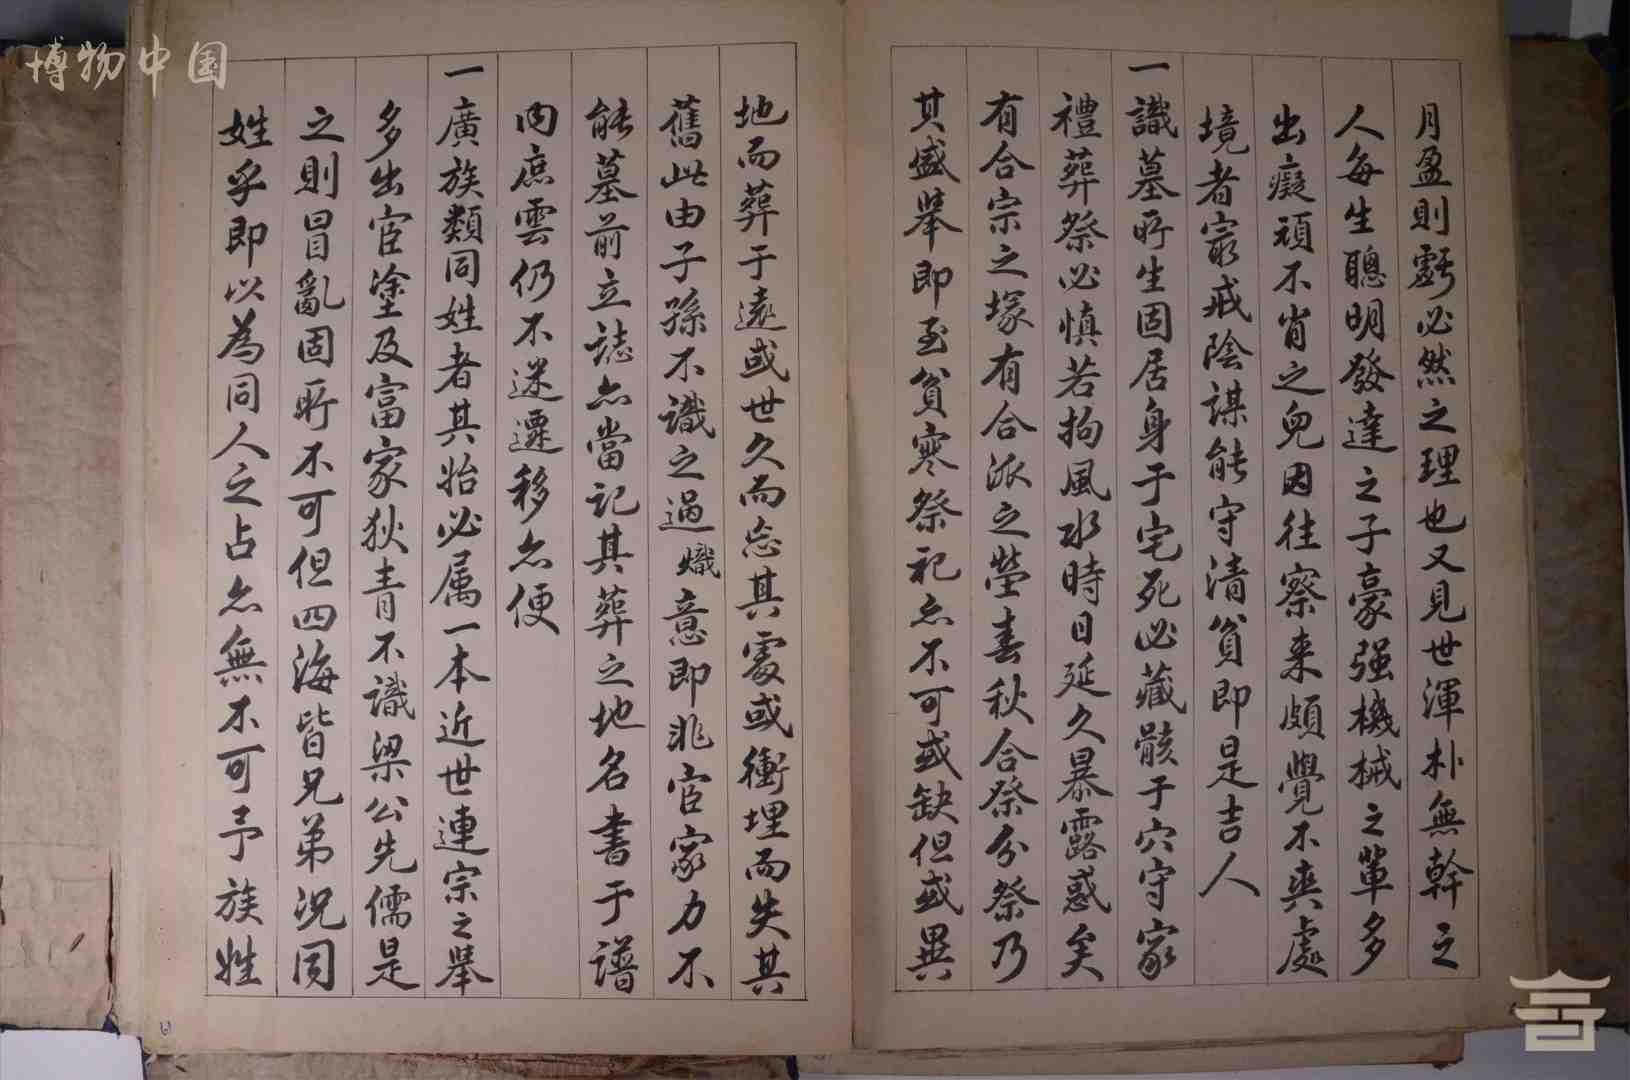 博物中国
月盈則虧必然之理也又見世渾朴無幹之
人每生聰明發達之子豪强機械之輩多
出癡頑不肖之兒因往察来頗覺不爽處
境者寧戒陰謀能守清貧即是吉人
一識墓所生固居身于宅死必藏骸于穴守家
禮葬祭必慎若拘風水時日延久暴露惑矣
有合宗之塚有合派之塋春秋合祭分祭乃
其盛举即至貧寒祭祀亦不可或缺但或異
地而葬于遠或世久而忘其處或衝埋而失其
舊此由子孫不識之過熾意即非官家力不
能墓前立誌亦當記其葬之地名書于譜
内庶雲仍不迷遷移亦便
一廣族類同姓者其始必属一本近世連宗之举
多出宦塗及富家狄青不識梁公先儒是
之則冒亂固所不可但四海皆兄弟况同
姓乎即以為同人之占亦無不可予族姓